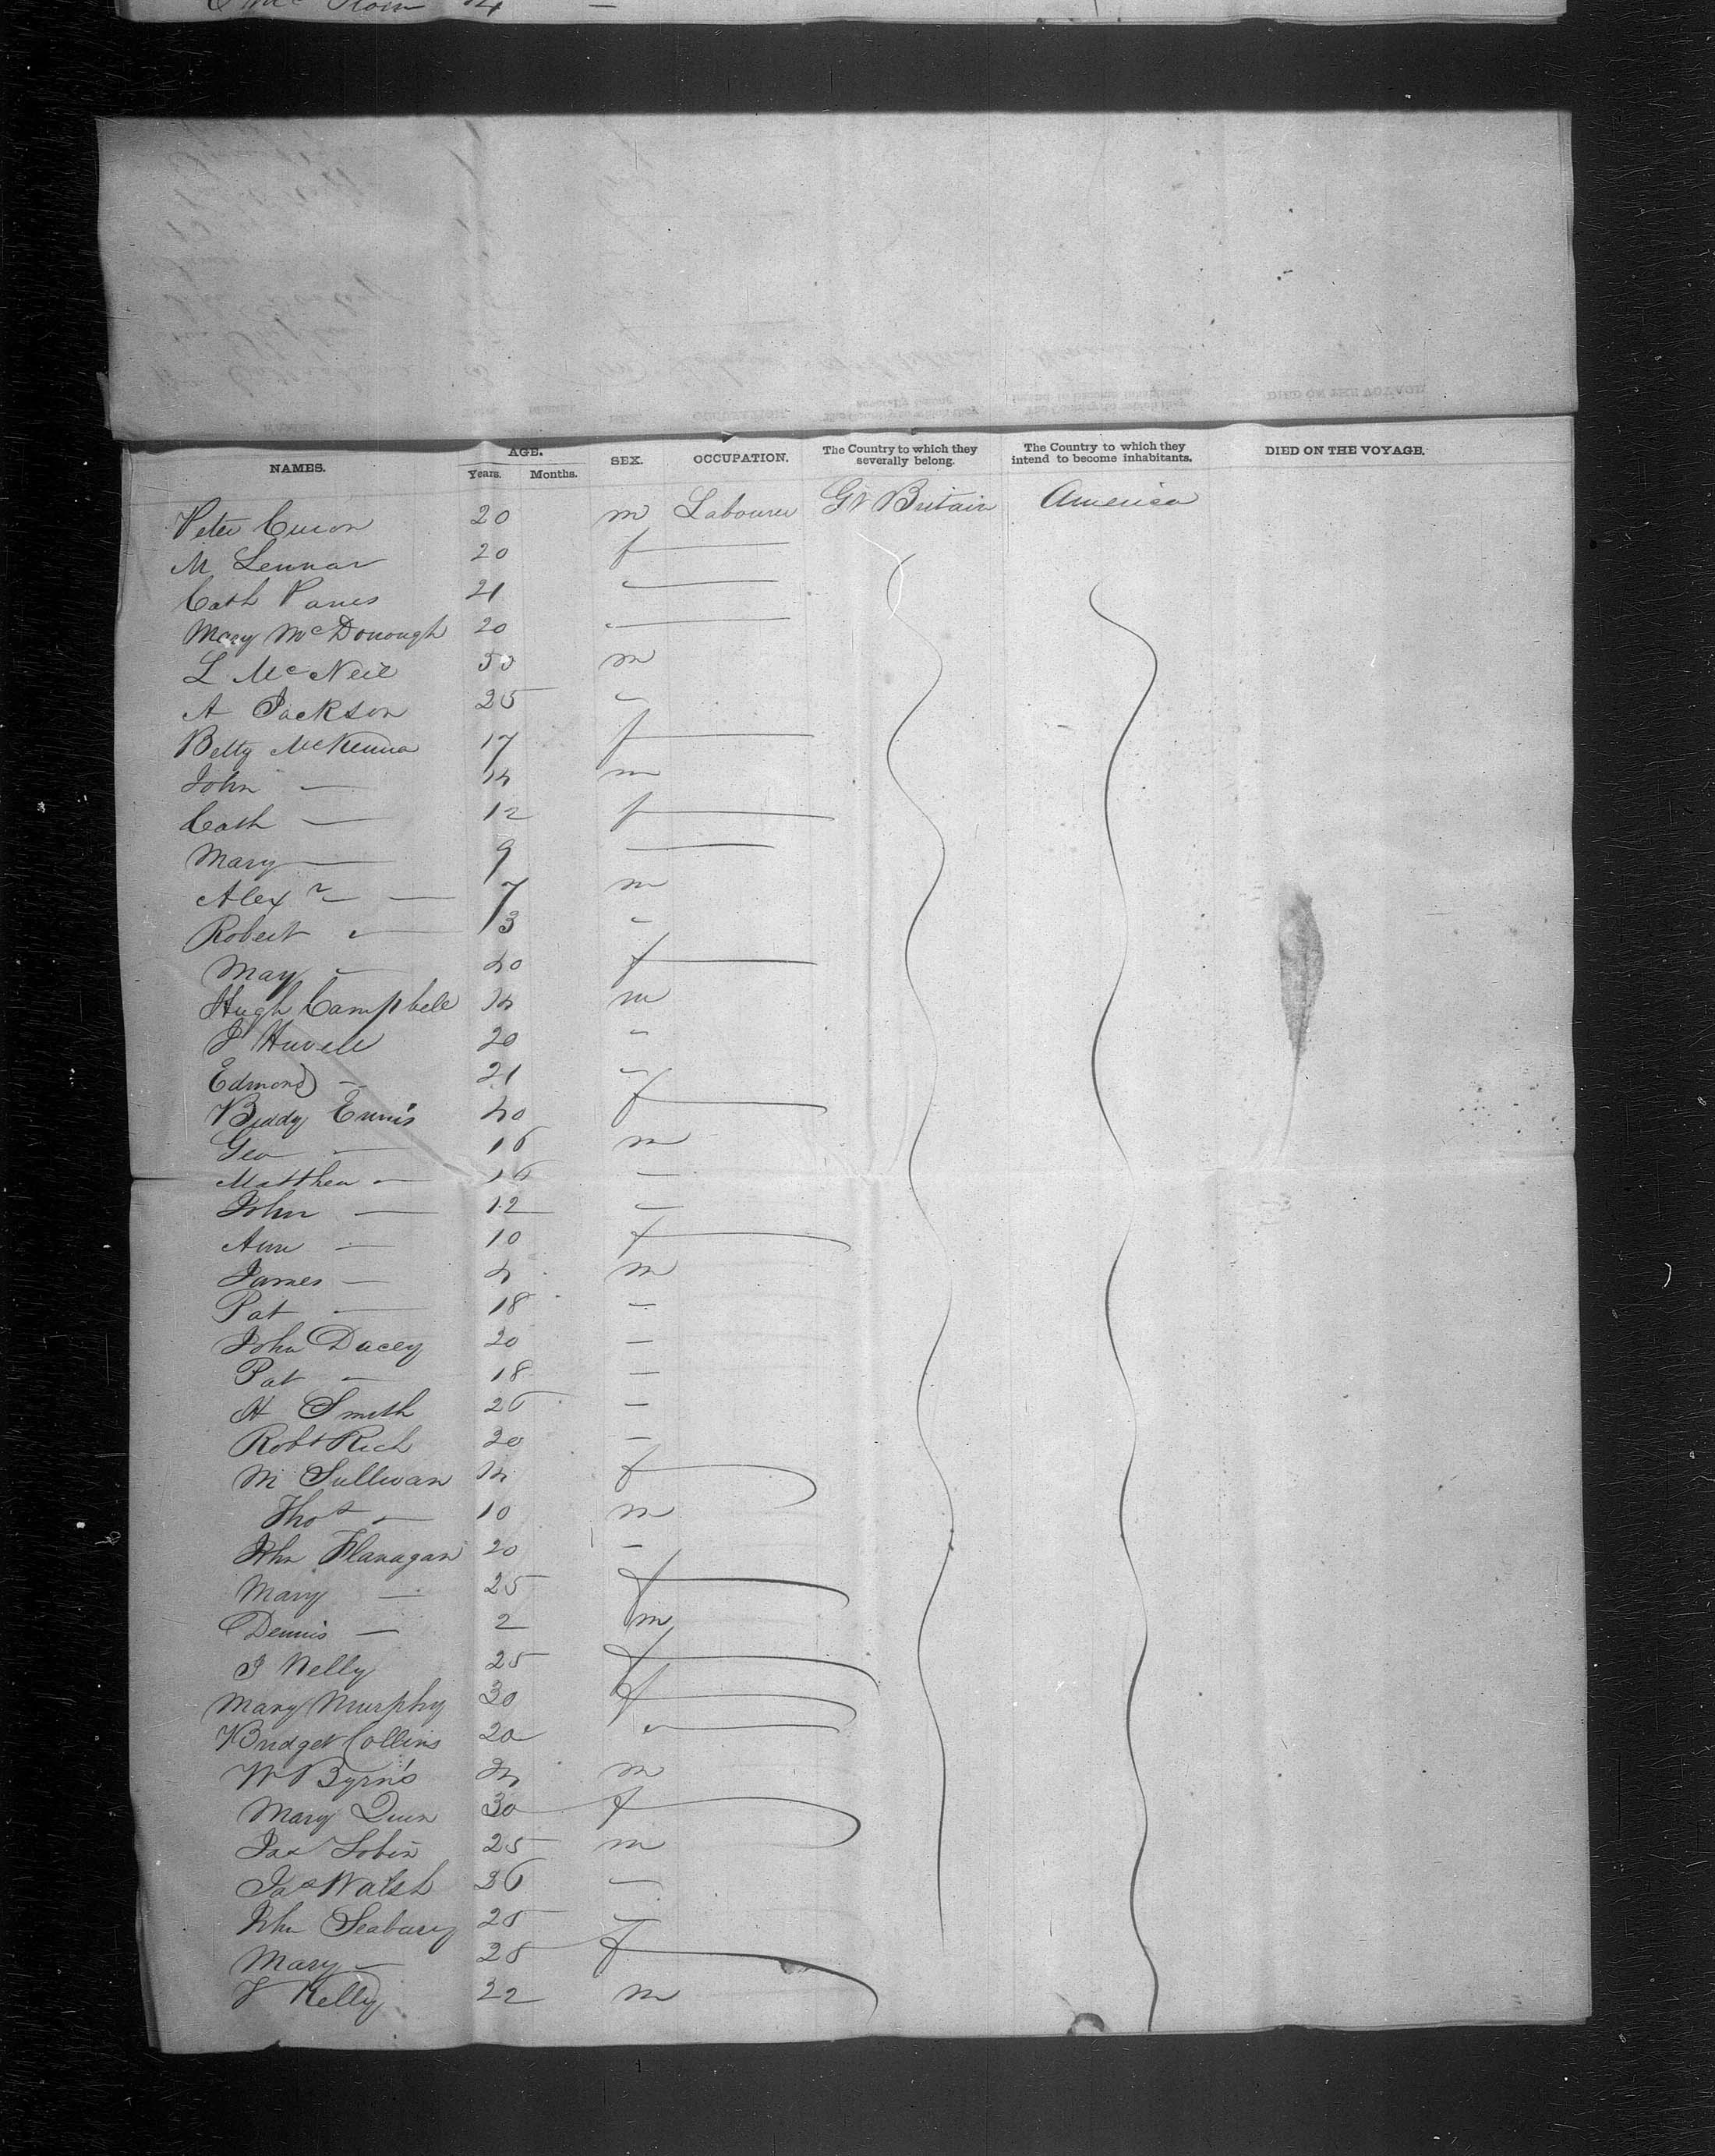 NAMES. AGE. Years. Months. SEX. OCCUPATION. The Country to which they severally belong. The Country to which they intend to become inhabitants. DIED ON THE VOYAGE.
Peter 20 m Labourer Gt Britain America
M Lennar 20 f
Cath 21
Mary McDonough 20
L McNeil 50 m
A Jackson 25
Betty McKenna 17 f
John — 14 m
Cath — 12 f
Mary — 9
Alexr — 7 m
Robert — 3
May — 40 f
Hugh Campbell 14 m
J 20
Edmond — 21
Biddy Ennis 40 f
Geo — 16 m
Matthew — 16
John — 12
Ann — 10 f
James — 4 m
Pat — 18
John Dacey 20
Pat — 18
H Smith 26
Robt Rich 20
M Sullivan 14 f
Thos — 10 m
John Flanagan 20
Mary — 25 f
Dennis — 2 m
J Nelly 25 f
Mary Murphy 30 f
Bridget Collins 20
W Byrns m
Mary Quin 30 f
Jas Tobin 25 m
Jas Walsh 36
John Seabury 25
Mary — 28 f
J Kelly 22 m